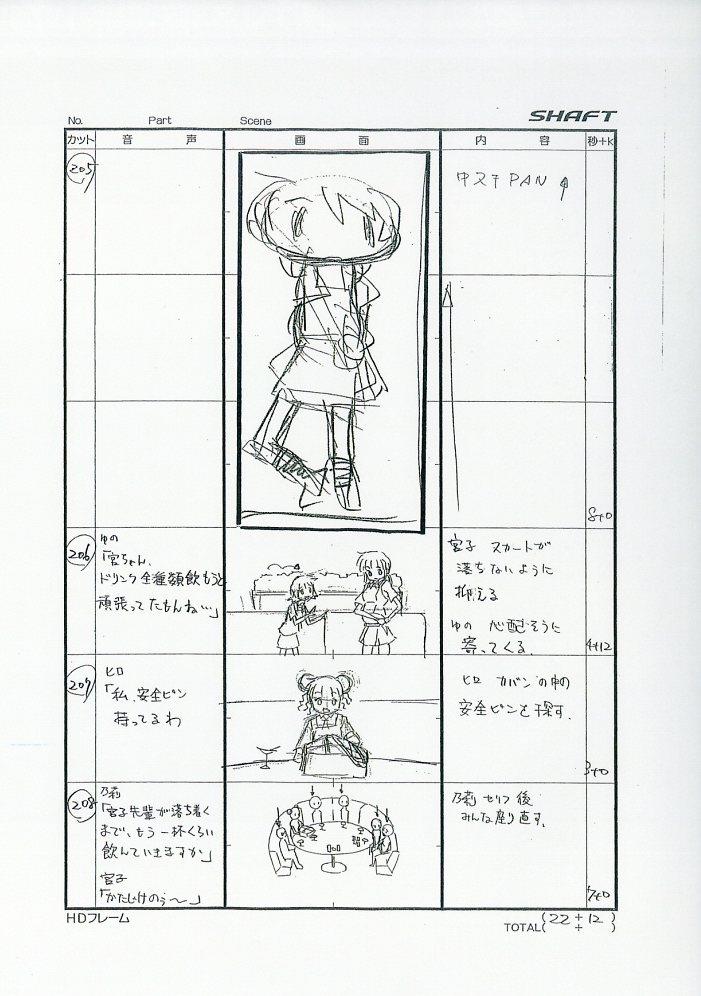 No. Part Scene SHAFT
カット 音 声 画 面 内 容 秒+K
205
ゆのPAN
8+0
206
ゆの
「宮ちゃん、
ドリンク全種類飲もうと
頑張ってたもんね…」
宮子 スカートが
落ちないように
抑える
ゆの 心配そうに
寄ってくる。
4+12
207
ヒロ
「私、安全ピン
持ってるわ
ヒロ カバンの中の
安全ピンを探す。
3+0
208
乃莉
「宮子先輩が落ち着く
まで、もう一杯くらい
飲んでいきますか」
宮子
「かたじけのぅ〜」
乃莉 セリフ後
みんな座り直す。
7+0
HDフレーム
TOTAL (22 + 12)
( + )